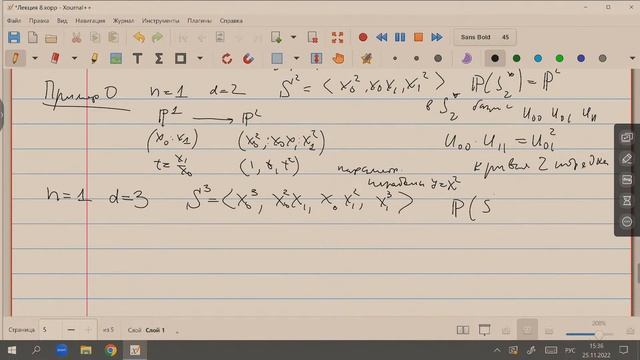 *Лекция 8.xopp - Xournal++
Файл Правка Вид Навигация Журнал Инструменты Плагин Справка
Sans Bold 45
Пример 0 n=1 d=2 S² = ⟨x₀², x₀x₁, x₁²⟩ ℙ(S₂*) = ℙ²
ℙ¹ ⟶ ℙ² в S₂* базис u₀₀ u₀₁ u₁₁
(x₀:x₁) (x₀²:x₀x₁:x₁²) u₀₀·u₁₁ = u₀₁²
t = x₁/x₀ (1, t, t²) кривая 2 порядка
парамет. парабола y=x²
n=1 d=3 S³ = ⟨x₀³, x₀²x₁, x₀x₁², x₁³⟩ ℙ(S
Страница 5 из 5 Слой Слой 1 208%
РУС 15:36
25.11.2022